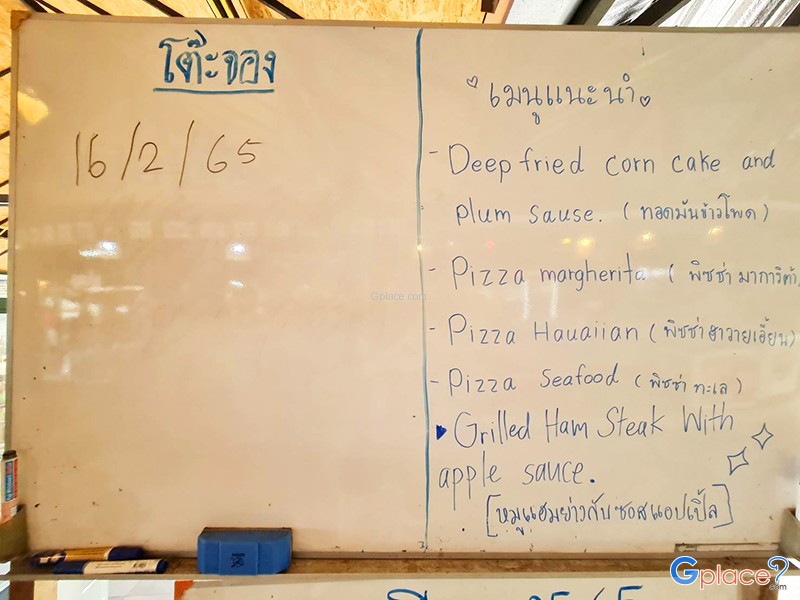 โต๊ะจอง
16/2/65
เมนูแนะนำ
- Deep fried corn cake and
plum sause. (ทอดมันข้าวโพด)
- Pizza margherita (พิซซ่า มาการิต้า)
- Pizza Hauaiian (พิซซ่าฮาวายเอี้ยน)
- Pizza Seafood (พิซซ่า ทะเล)
Grilled Ham Steak With
apple sauce.
[หมูแฮมย่างกับซอสแอปเปิ้ล]
Gplace.com
Gplace.com